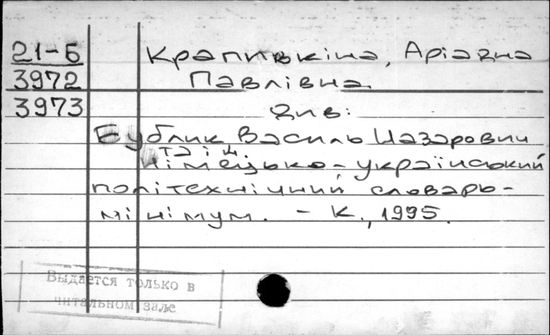 21-Б
3972
3973
Крапивкіна, Аріадна
Павлівна.
див:
Бублик Василь Назарович
та ін.
Німецько-український
політехнічний словарь-
мінімум. - К., 1995.
Выдается только в
читальном зале